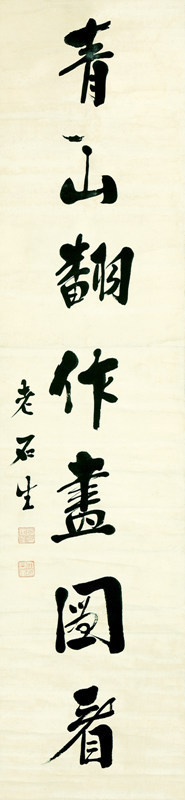 青山翻作畫圖看
老石生